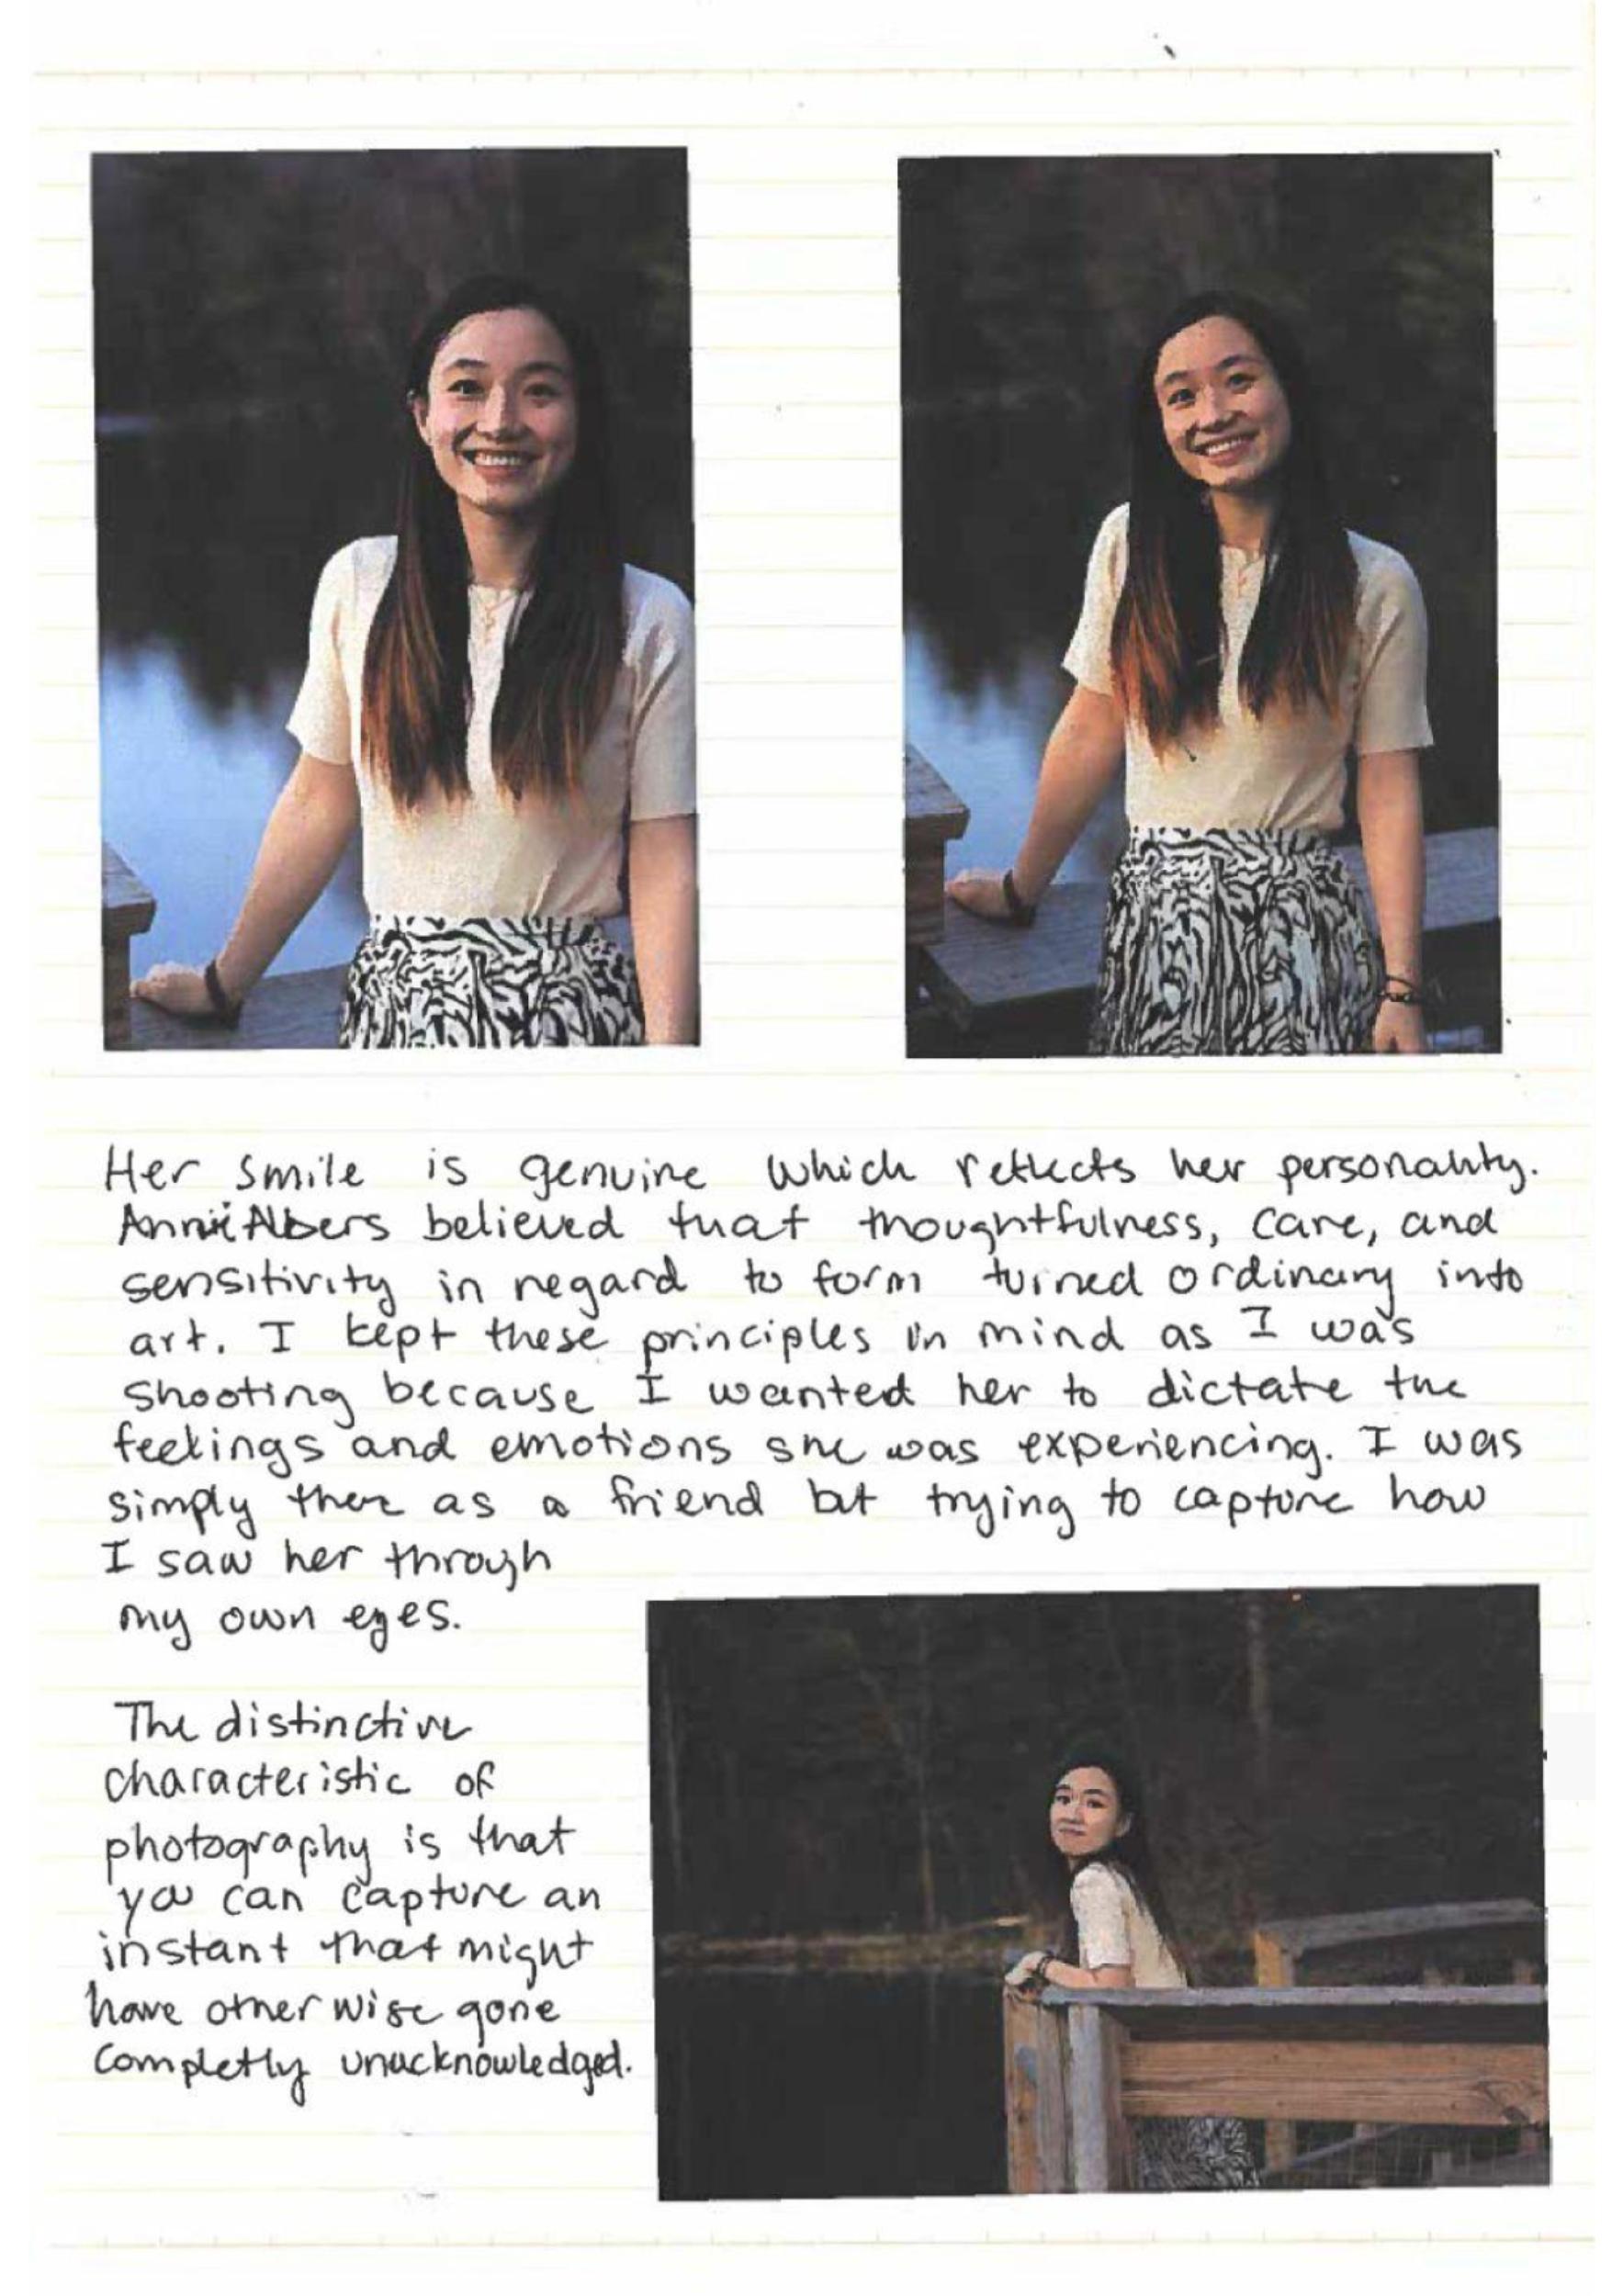 Her smile is genuine which reflects her personality.
Anni Albers believed that thoughtfulness, care, and
sensitivity in regard to form turned ordinary into
art. I kept these principles in mind as I was
shooting because I wanted her to dictate the
feelings and emotions she was experiencing. I was
simply there as a friend but trying to capture how
I saw her through
my own eyes.
The distinctive
characteristic of
photography is that
you can capture an
instant that might
have otherwise gone
completly unacknowledged.